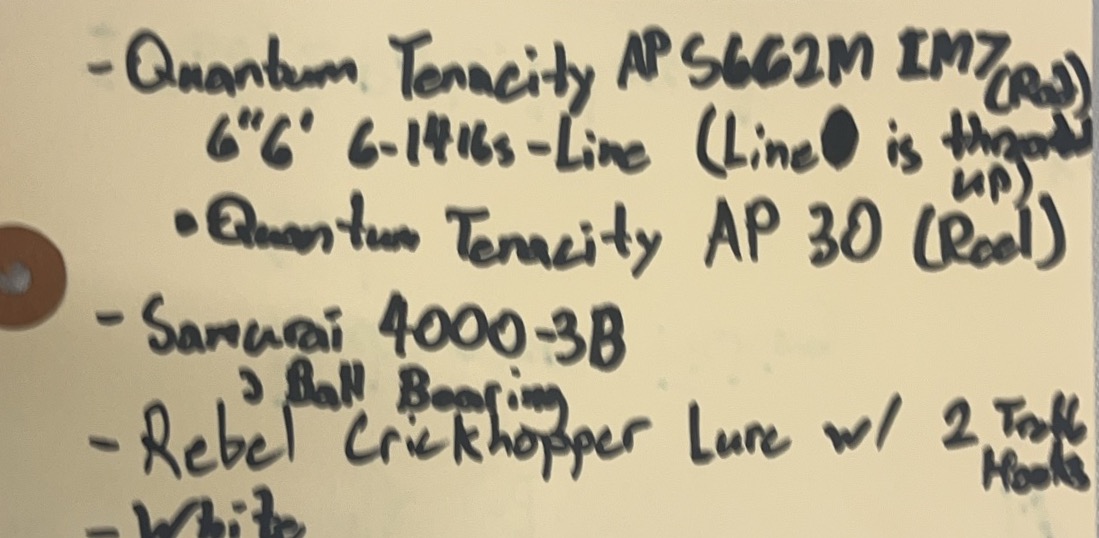 - Quantum Tenacity AP S662M IM7 (Rod)
6"6' 6-14lbs-Line (Line is thread up)
• Quantum Tenacity AP 30 (Reel)
- Samurai 4000-3B
3 Ball Bearing
- Rebel Crickhopper Lure w/ 2 Hooks
- White